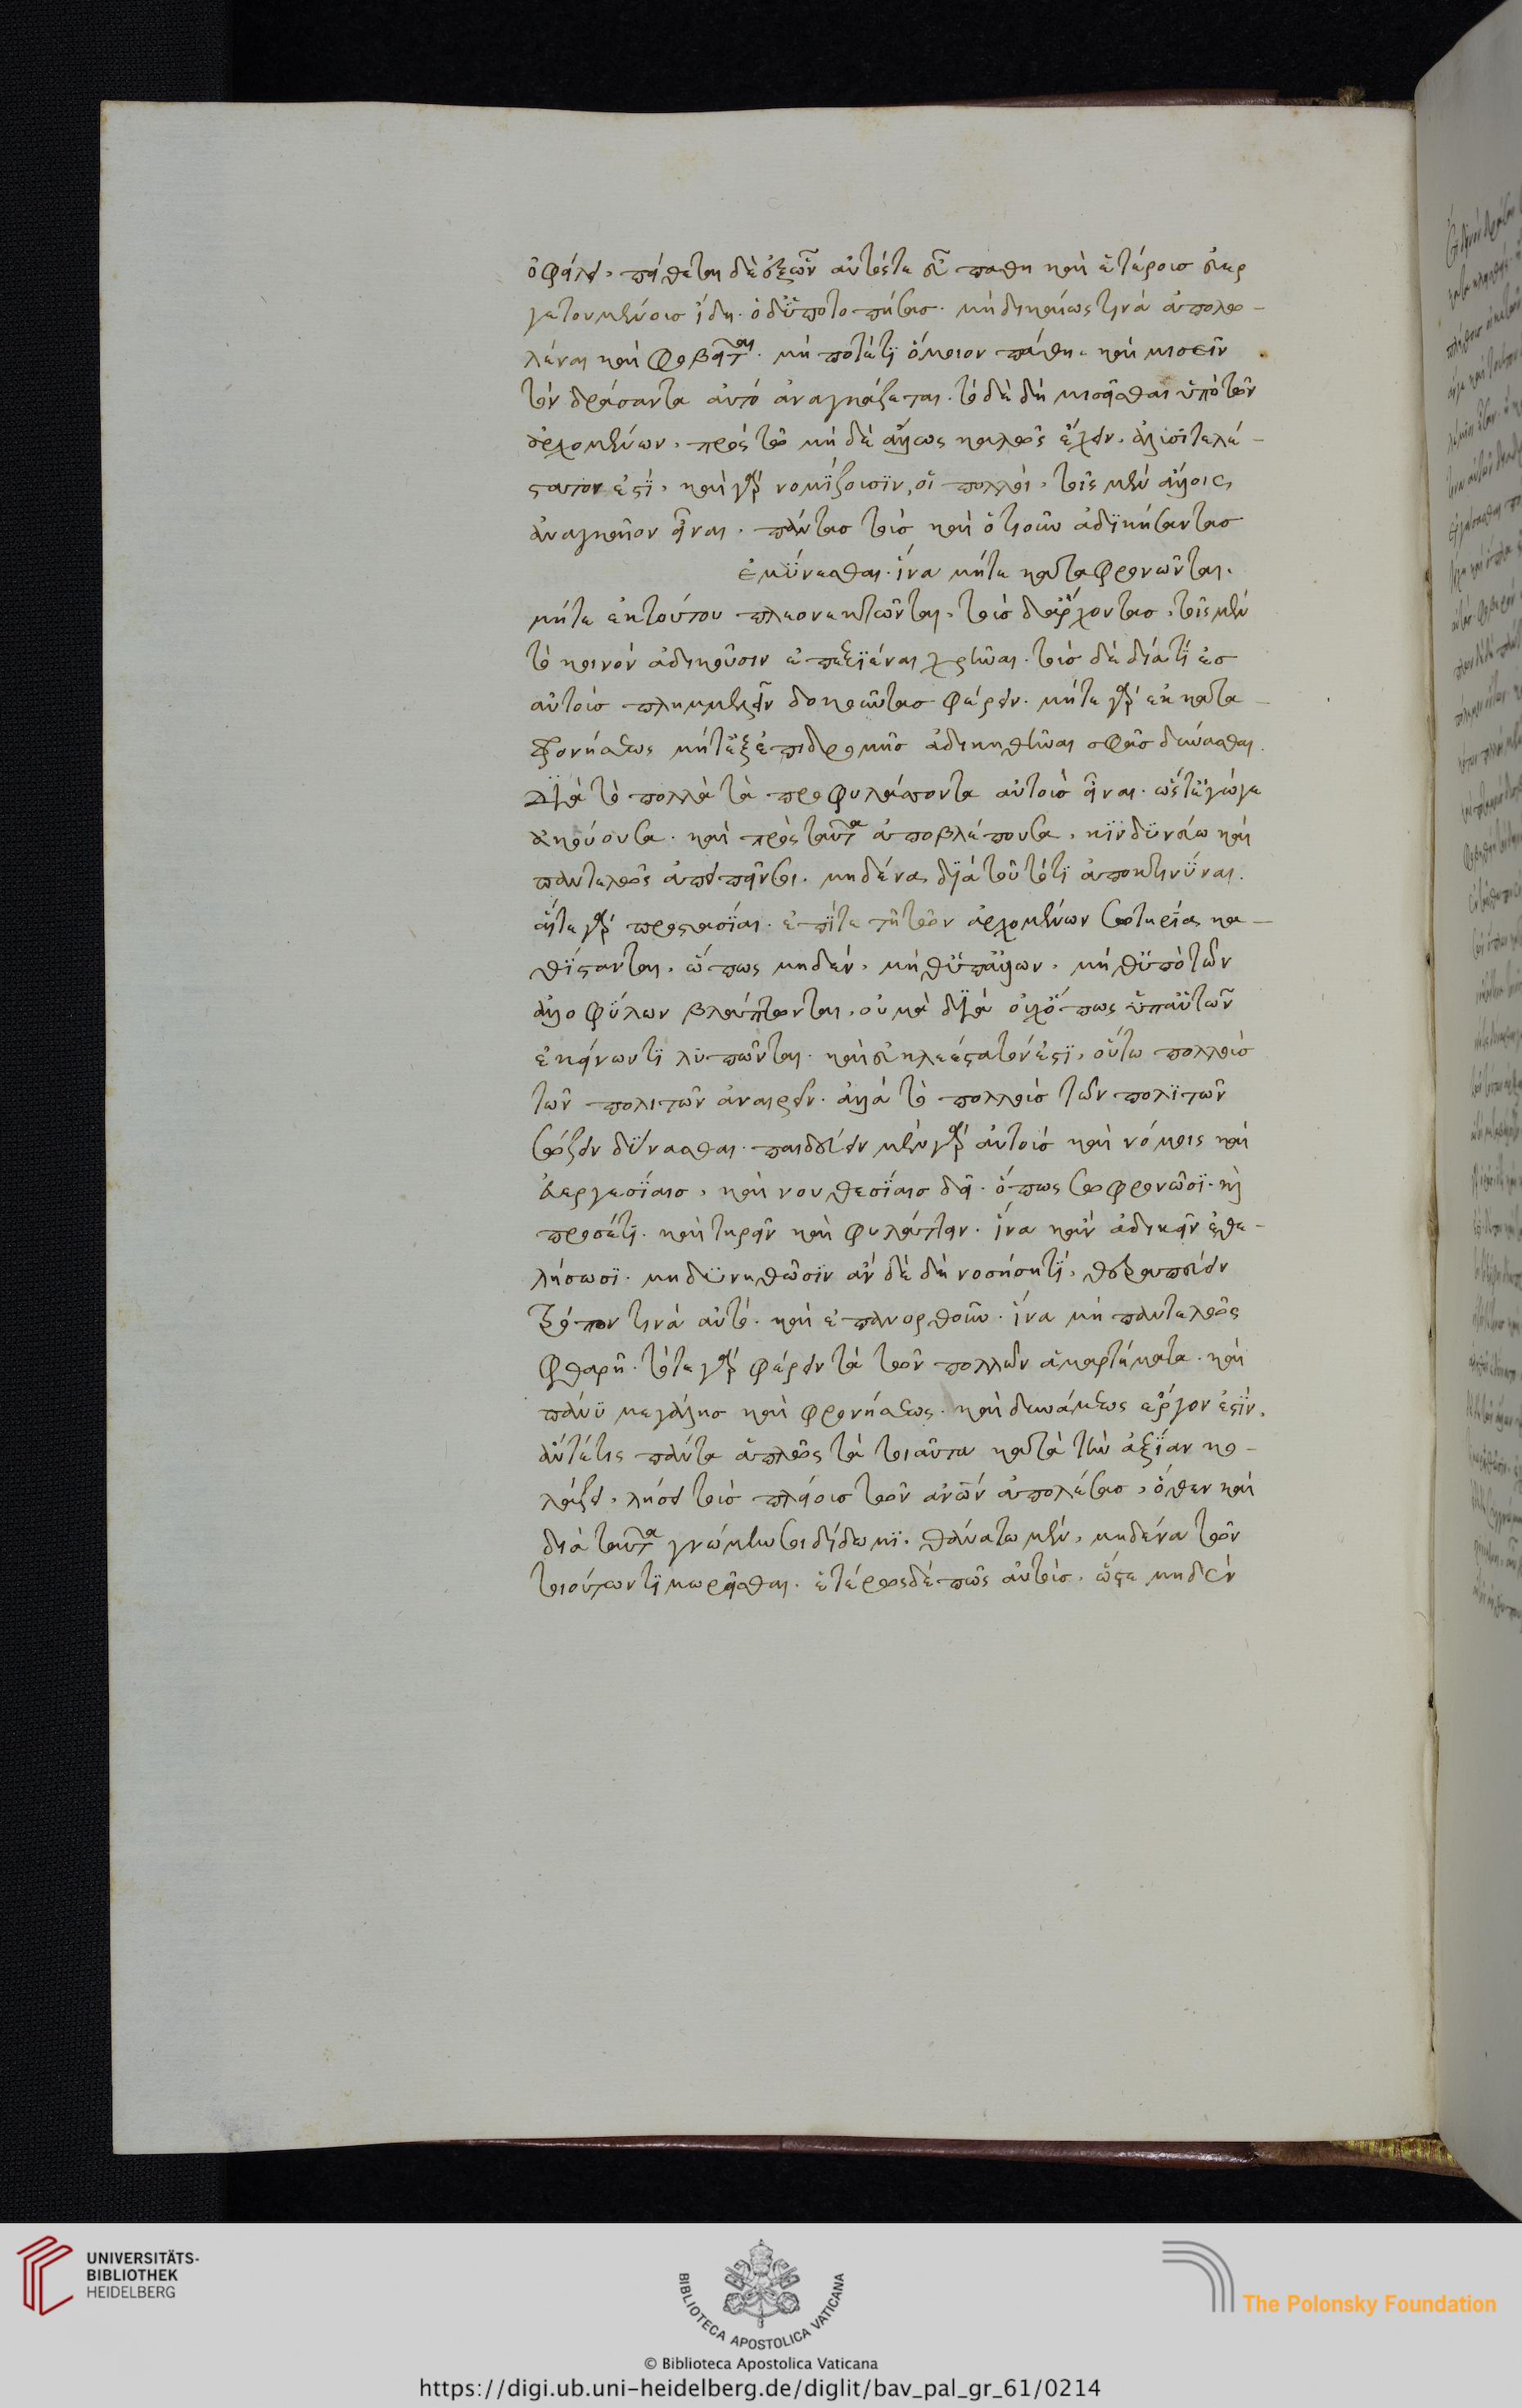 ὀφείλει. πείθεται δὲ ἐξ ὧν αὐτός τε εὖ παθη καὶ ἑτέρους εὐερ
γετουμένους ἴδη. ὁ δ' ὑποτοπήσας. μὴ δικαίως τινὰ ἀπολω-
λέναι καὶ φοβεῖται. μή ποτέ τι ὅμοιον πάθη. καὶ μισεῖν
τὸν δράσαντα αὐτὸ ἀναγκάζεται. τὸ δὲ δὴ μισεῖσθαι ὑπὸ τῶν
ἀρχομένων, πρὸς τῶ μὴ δὲ ἄλλως καλῶς ἔχειν, ἀλυσιτελέ-
στατον ἐστὶ, καὶ γὰρ νομίζουσιν, οἱ πολλοὶ, τοῖς μὲν ἄλλοις,
ἀναγκαῖον εἶναι. πάντας τοὺς καὶ ὁτιοῦν ἀδικήσαντας
ἐμύνεσθαι. ἵνα μήτε καταφρονῶνται.
μήτε ἐκ τούτου πλεονεκτῶνται, τοὺς δ' ἄρχοντας, τοῖς μὲν
τὸ κοινὸν ἀδικοῦσιν ἐπεξιέναι χρῆναι. τοὺς δὲ διά τι ἐς
αὐτοὺς πλημμελεῖν δοκοῦντας φέρειν. μήτε γὰρ ἐκ κατα-
φρονήσεως μήτ' ἐξ ἐπιδρομῆς ἀδικηθῆναι σφᾶς δύνασθαι.
διὰ τὸ πολλὰ τὰ προφυλάττοντα αὐτοὺς εἶναι. ὥστ' ἔγωγε
ἀκούουσα. καὶ πρὸς ταῦτα ἀποβλέπουσα, κινδυνεύω καὶ
παντελῶς ἀπειπεῖν σοι. μηδένα διὰ τοῦτό τι ἀποκτιννύναι.
αἵτε γὰρ προστασίαι. ἐπί τε τῆ τῶν ἀρχομένων σωτηρία κα-
θίστανται, ὥπως μηδὲν, μήθ' ὑπ' ἄλλων, μήθ' ὑπὸ τῶν
ἀλλοφύλων βλάπτωνται, οὐ μὰ διὰ οὐχ ὅπως ὑπ' αὐτῶν
ἐκείνων τι λυπῶνται. καὶ εὐκλεέστατόν ἐστι, οὔτω πολλοὺς
τῶν πολιτῶν ἀναιρεῖν. ἀλλὰ τὸ πολλοὺς τῶν πολιτῶν
σώζειν δύνασθαι. παιδεύειν μὲν γὰρ αὐτοὺς καὶ νόμοις καὶ
εὐεργεσίαις, καὶ νουθεσίαις δεῖ. ὅπως σωφρονῶσι. καὶ
προσέτι. καὶ τηρεῖν καὶ φυλάττειν. ἵνα κἂν ἀδικεῖν ἐθε-
λήσωσι. μὴ δυνηθῶσιν ἂν δὲ δὴ νοσήσητί, θεραπεύειν
τρόπον τινὰ αὐτὸ. καὶ ἐπανορθοῦν. ἵνα μὴ παντελῶς
φθαρῆ. τότε γὰρ φέρειν τὰ τῶν πολλῶν ἁμαρτήματα. καὶ
πάνυ μεγάλης καὶ φρονήσεως. καὶ δυνάμεως ἔργον ἐστὶν.
ἄν τέ τις πάντα ἁπλῶς τὰ τοιαῦτα κατὰ τὴν ἀξίαν κο-
λάζει, λήσει τοὺς πλείους τῶν ἀνῶν ἀπολέσας, ὅθεν καὶ
διὰ ταῦτα γνώμην σοι δίδωμι. θανάτω μὲν, μηδένα τῶν
τοιούτων τιμωρεῖσθαι. ἑτέρως δέ πως αὐτοὺς, ὥστε μηδὲν
UNIVERSITÄTS-
BIBLIOTHEK
HEIDELBERG
BIBLIOTECA APOSTOLICA VATICANA
The Polonsky Foundation
© Biblioteca Apostolica Vaticana
https://digi.ub.uni-heidelberg.de/diglit/bav_pal_gr_61/0214